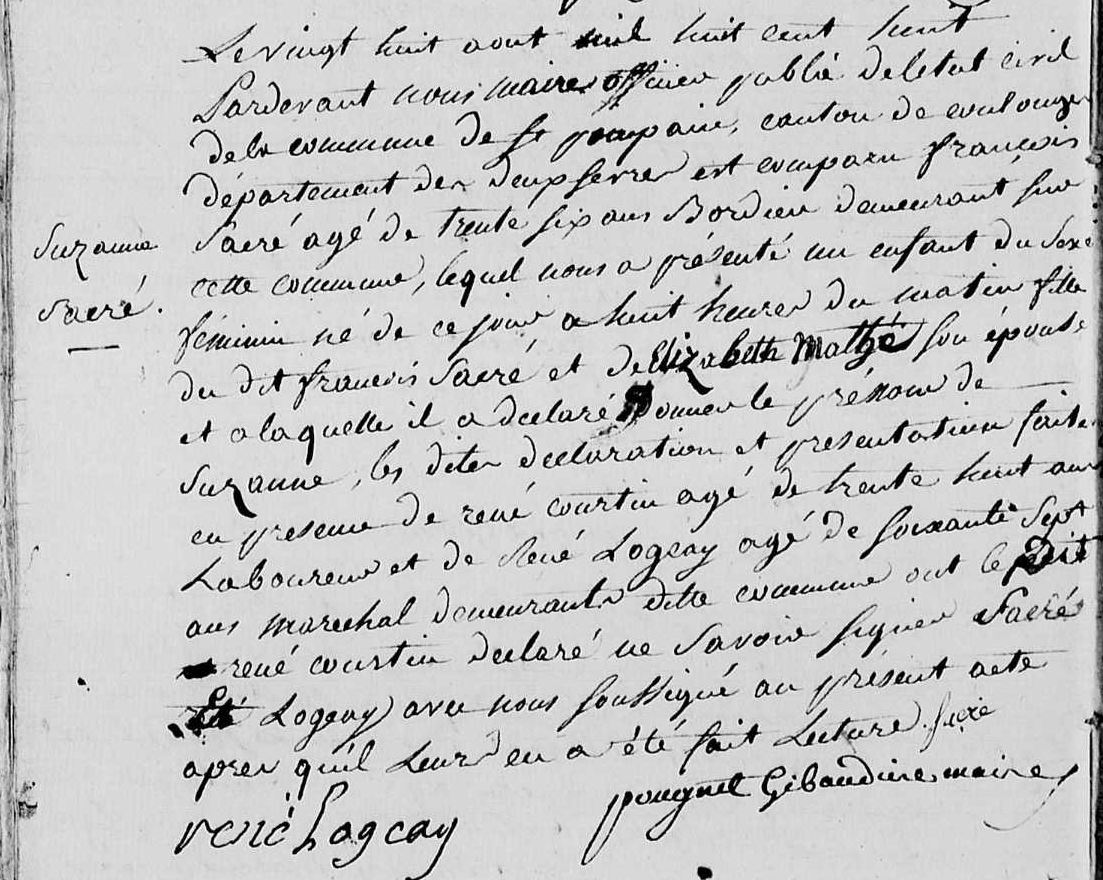 Le vingt huit aout mil huit cent huit
Pardevant nous maire officier public de letat civil
de la commune de st pompain, canton de coulonges
département des deux sevres est comparu françois
Suzanne
Sacré.
Sacré agé de trente six ans Bordier demeurant sur
cette commune, lequel nous a présenté un enfant du sexe
féminin né de ce jour a huit heures du matin fille
du dit francois Sacré et de Elizabeth Mathé son épouse
et a laquelle il a declaré donner le prénom de
Suzanne, les dites declaration et presentation faites
en presence de rené courtin agé de trente huit ans
Laboureur et de René Logeay agé de soixante sept
ans marechal demeurants ditte commune ont le dit
rené courtin declaré ne savoir signer Sacré
Et Logeay avec nous soussigné au présent acte
apres qu'il leur en a été fait lecture. sacré
pougnet Gibaudiere maire
rené Logeay